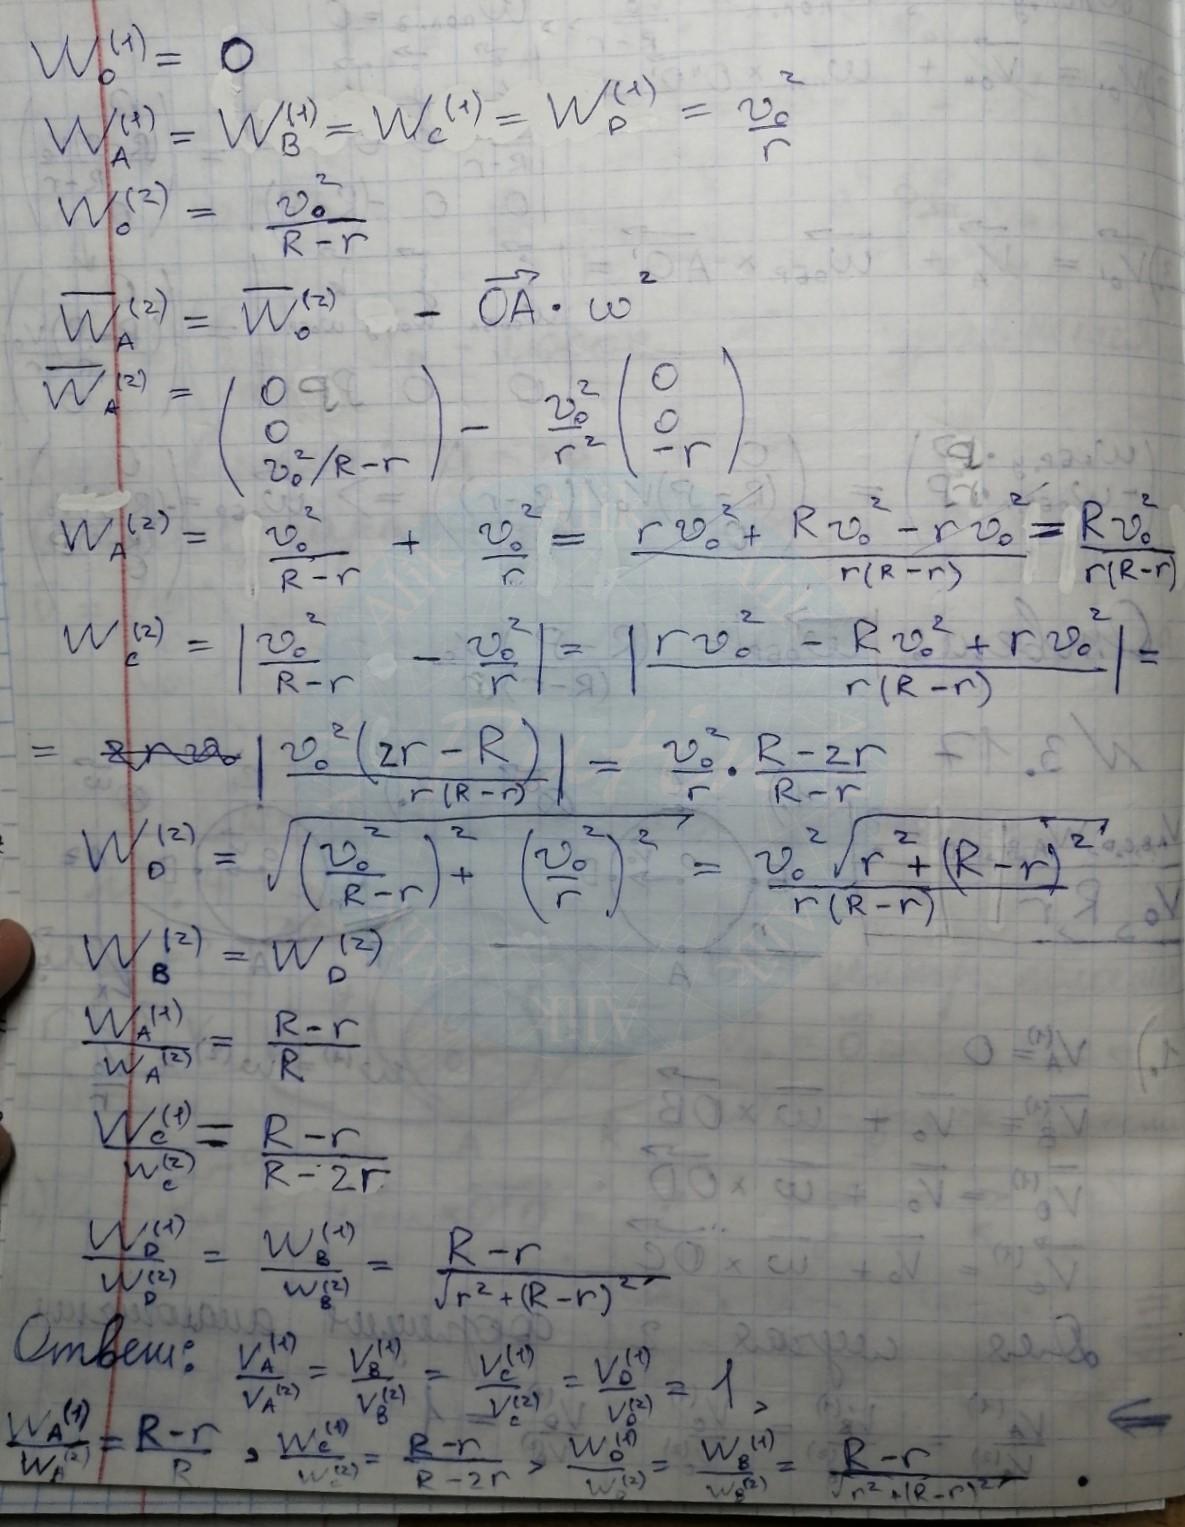 W₀⁽¹⁾ = 0
W_A⁽¹⁾ = W_B⁽¹⁾ = W_C⁽¹⁾ = W_D⁽¹⁾ = v₀²/r
W₀⁽²⁾ = v₀²/(R-r)
W̅_A⁽²⁾ = W̅₀⁽²⁾ - O⃗A⃗ · ω²
W̅_A⁽²⁾ = (0 0 v₀²/R-r) - v₀²/r² (0 0 -r)
W_A⁽²⁾ = v₀²/(R-r) + v₀²/r = (rv₀² + Rv₀² - rv₀²)/(r(R-r)) = Rv₀²/(r(R-r))
W_C⁽²⁾ = |v₀²/(R-r) - v₀²/r| = |(rv₀² - Rv₀² + rv₀²)/(r(R-r))| =
= |v₀²(2r-R)/(r(R-r))| = v₀²/r · (R-2r)/(R-r)
W_D⁽²⁾ = √((v₀²/(R-r))² + (v₀²/r)²) = v₀²√(r²+(R-r)²)/(r(R-r))
W_B⁽²⁾ = W_D⁽²⁾
W_A⁽¹⁾/W_A⁽²⁾ = (R-r)/R
W_C⁽¹⁾/W_C⁽²⁾ = (R-r)/(R-2r)
W_D⁽¹⁾/W_D⁽²⁾ = W_B⁽¹⁾/W_B⁽²⁾ = (R-r)/√(r²+(R-r)²)
Ответ: V_A⁽¹⁾/V_A⁽²⁾ = V_B⁽¹⁾/V_B⁽²⁾ = V_C⁽¹⁾/V_C⁽²⁾ = V_D⁽¹⁾/V_D⁽²⁾ = 1,
W_A⁽¹⁾/W_A⁽²⁾ = (R-r)/R, W_C⁽¹⁾/W_C⁽²⁾ = (R-r)/(R-2r), W_D⁽¹⁾/W_D⁽²⁾ = W_B⁽¹⁾/W_B⁽²⁾ = (R-r)/√(r²+(R-r)²).